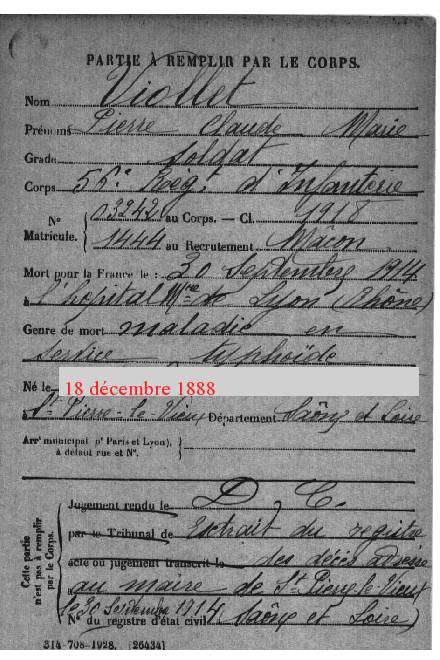 PARTIE À REMPLIR PAR LE CORPS.
Nom Viollet
Prénoms Pierre Claude Marie
Grade soldat
Corps 56e Régt d'Infanterie
N° 03242 au Corps. — Cl. 1918
Matricule. 1444 au Recrutement Mâcon
Mort pour la France le : 30 Septembre 1914
à l'hôpital Mre de Lyon (Rhône)
Genre de mort maladie en
service, typhoïde
Né le 18 décembre 1888
à St Pierre-le-Vieux Département Saône et Loire
Arrt municipal (pr Paris et Lyon),
à défaut rue et N°.
Cette partie
n'est pas à remplir
par le Corps.
Jugement rendu le D. C.
par le Tribunal de Extrait du registre
acte ou jugement transcrit le des décès adressé
au maire de St Pierre le Vieux
le 30 Septembre 1914 (Saône et Loire)
N° du registre d'état civil
314-708-1928. [26434]